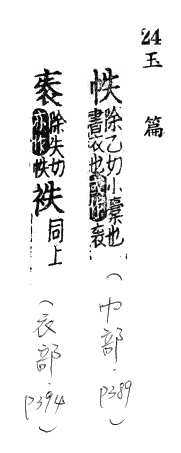 24
玉篇
帙除乙切小橐也
書衣也或作袠
(巾部·p389)
袠除失切
亦作帙袟同上
(衣部·p394)